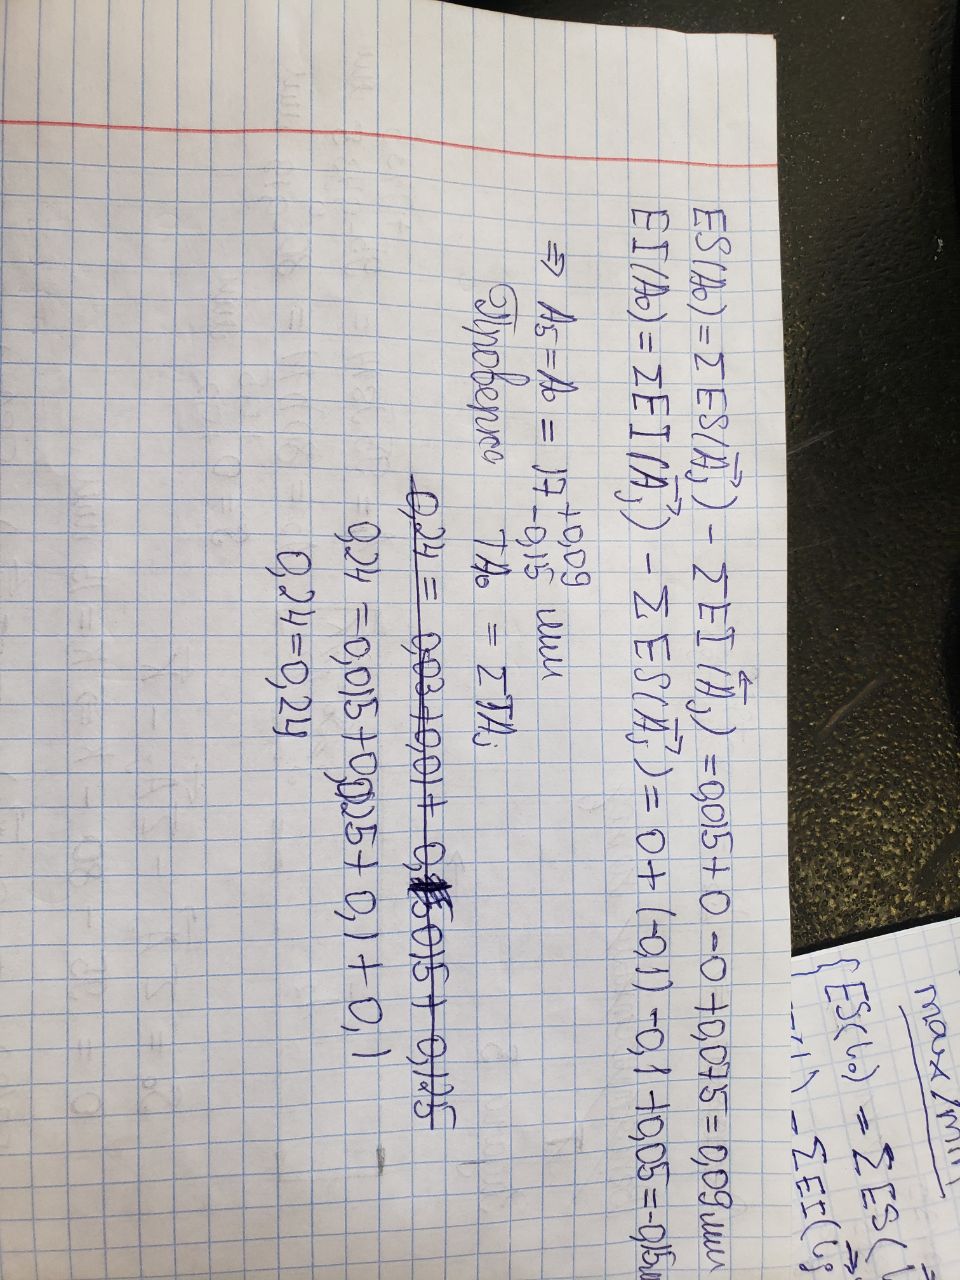 max/min
{ES(L₀) = ΣES(
ΣEI(
ES(A₀) = ΣES(A⃗ⱼ) - ΣEI(A⃖ⱼ) = 0,015 + 0 - 0 + 0,075 = 0,09 мм
EI(A₀) = ΣEI(A⃗ⱼ) - ΣES(A⃗ⱼ) = 0 + (-0,1) - 0,1 + 0,05 = -0,15 м
⇒ A₅ = A₀ = 17 +0,09 -0,15 мм
Проверка TA₀ = ΣTAⱼ
0,24 = 0,03 + 0,01 + 0,015 + 0,125
0,24 = 0,015 + 0,025 + 0,1 + 0,1
0,24 = 0,24